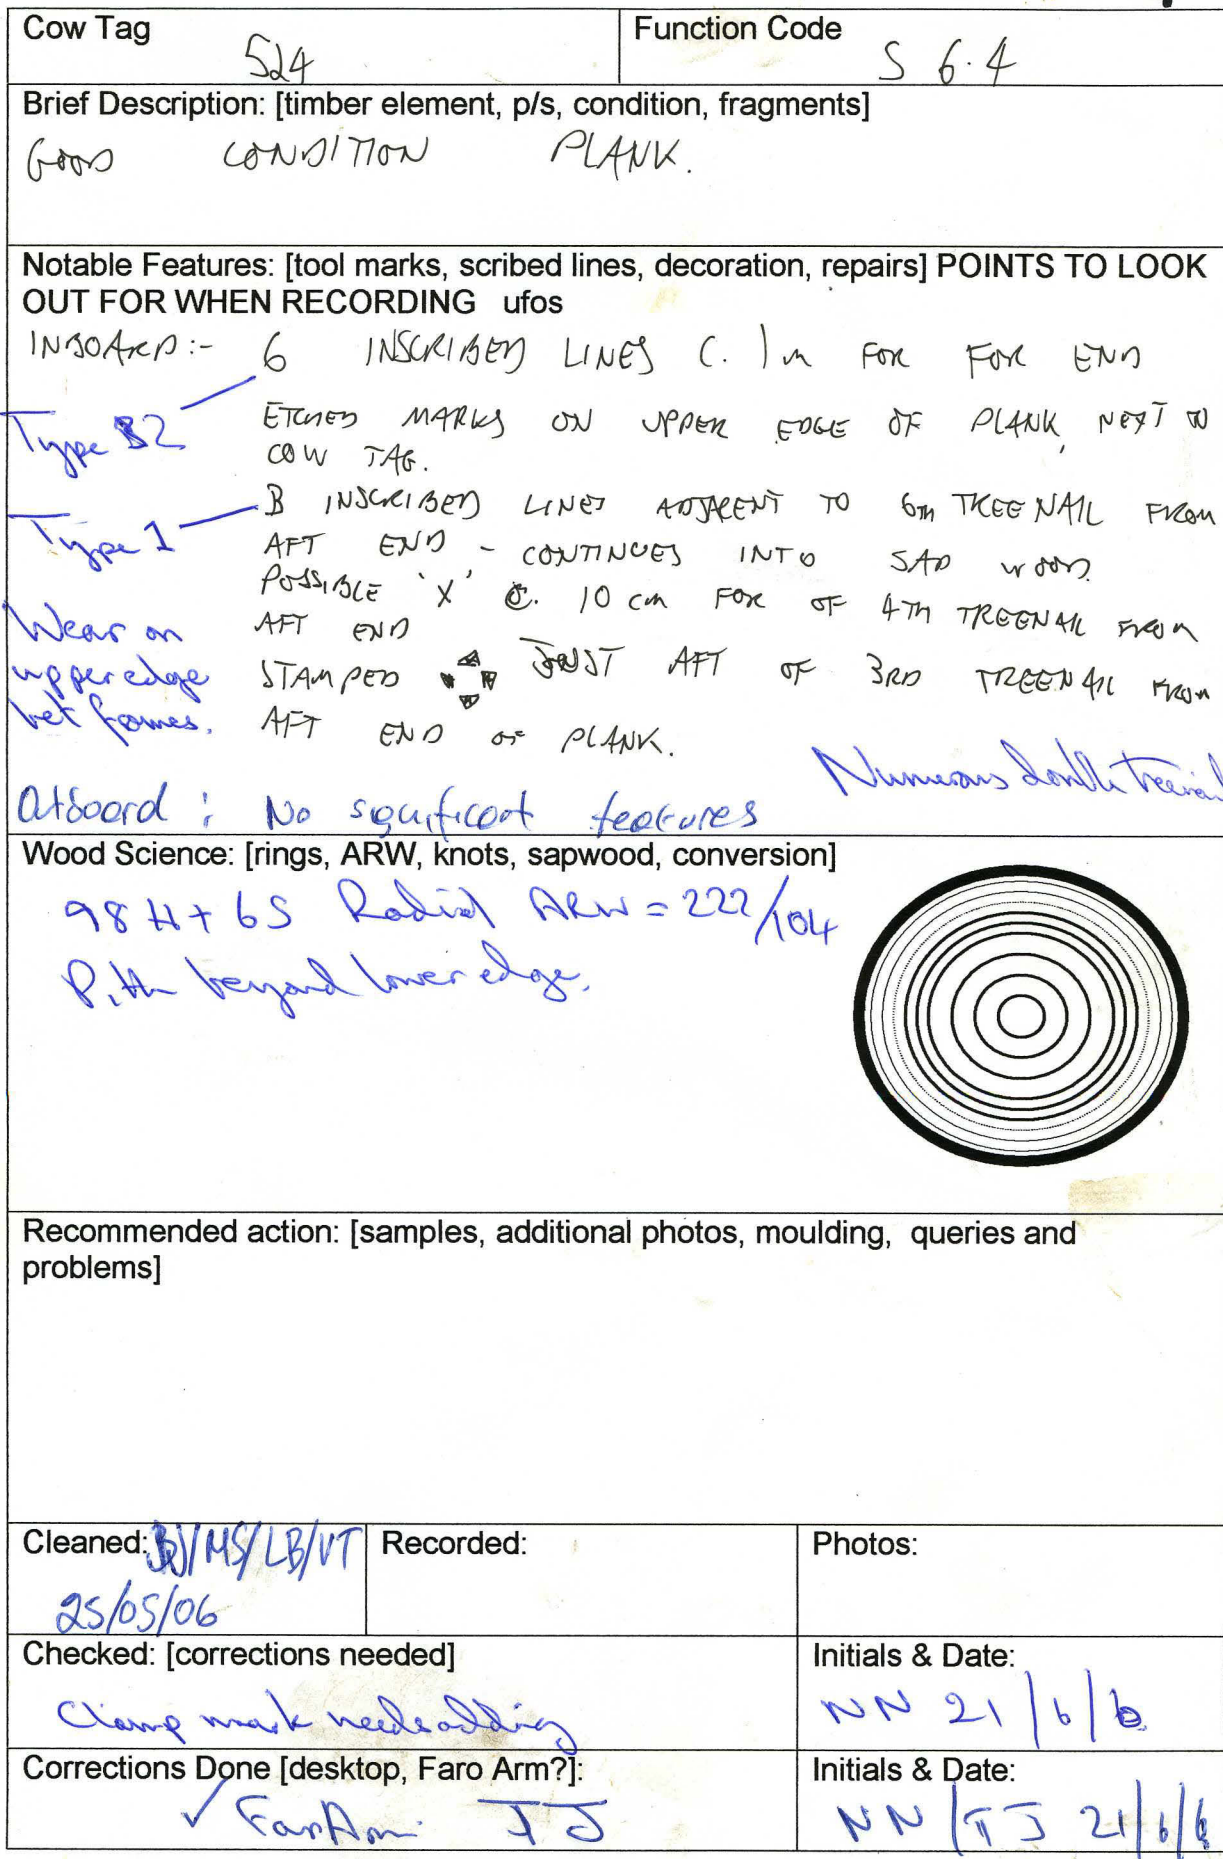 Cow Tag 524
Function Code S 6.4
Brief Description: [timber element, p/s, condition, fragments]
GOOD CONDITION PLANK.
Notable Features: [tool marks, scribed lines, decoration, repairs] POINTS TO LOOK
OUT FOR WHEN RECORDING ufos
INBOARD:- 6 INSCRIBED LINES C. 1m FOR FOR END
Type B2
ETCHED MARKS ON UPPER EDGE OF PLANK, NEXT TO
COW TAG.
Type 1
3 INSCRIBED LINES ADJACENT TO 6TH TREENAIL FROM
AFT END - CONTINUES INTO SAP WOOD.
POSSIBLE 'X' C. 10 cm FOR OF 4TH TREENAIL FROM
AFT END
Wear on
upper edge
bet frames.
STAMPED JUST AFT OF 3RD TREENAIL FROM
AFT END OF PLANK.
Numerous double treenail
Outboard : No significant features
Wood Science: [rings, ARW, knots, sapwood, conversion]
98 H + 6S Radial ARW = 222/104
Pith beyond lower edge.
Recommended action: [samples, additional photos, moulding, queries and
problems]
Cleaned: /MS/LB/VT
25/05/06
Recorded:
Photos:
Checked: [corrections needed]
Clamp mark needs adding
Initials & Date:
NN 21/6/6
Corrections Done [desktop, Faro Arm?]:
✓ FaroArm TJ
Initials & Date:
NN/TJ 21/6/6